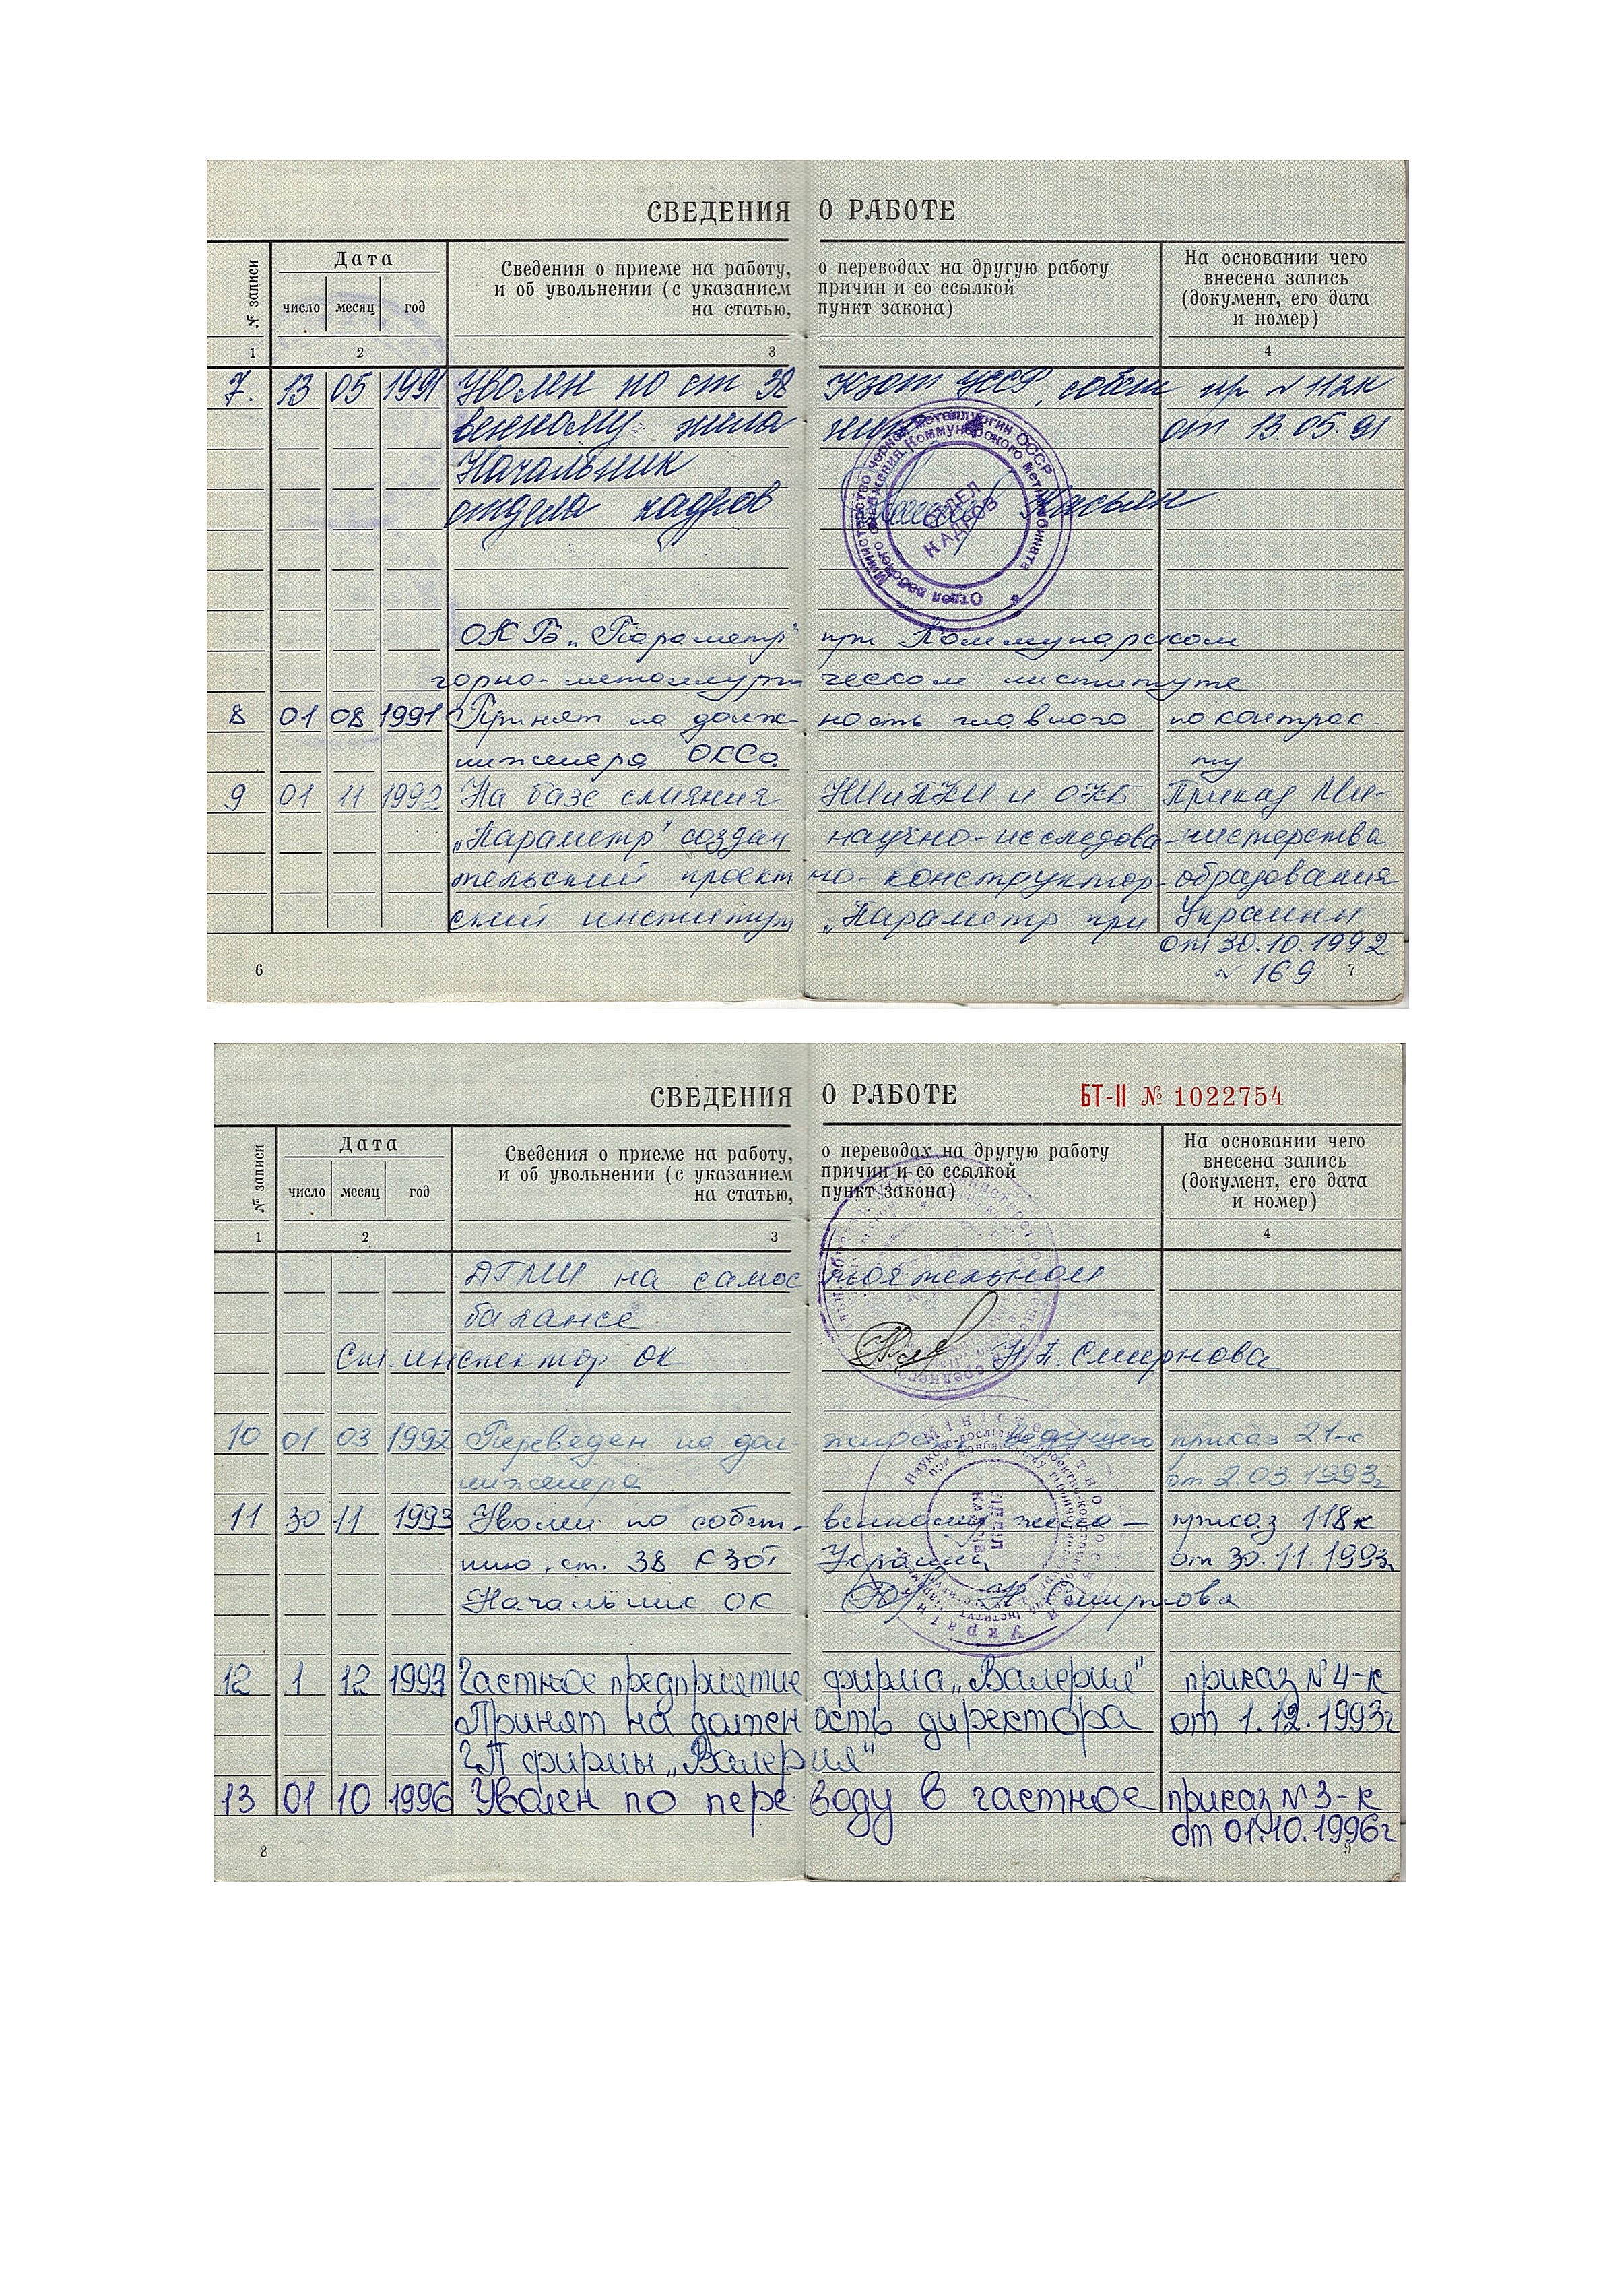 СВЕДЕНИЯ О РАБОТЕ
№ записи
Дата
число месяц год
Сведения о приеме на работу, о переводах на другую работу
и об увольнении (с указанием причин и со ссылкой
на статью, пункт закона)
На основании чего
внесена запись
(документ, его дата
и номер)
1 2 3 4
7. 13 05 1991 Уволен по ст 38 Кзот УССР, собст пр № 112к
венному жела нию от 13.05.91
Начальник
отдела кадров Касьян
Министерство черной металлургии СССР
Отдел рабочего снабжения Коммунарского меткомбината
ОТДЕЛ
КАДРОВ
ОКБ „Параметр" при Коммунарском
горно-металлурги ческом институте
8 01 08 1991 Принят на долж- ность главного по контрак-
инженера ОКСа ту
9 01 11 1992 На базе слияния НИиПКИ и ОКБ Приказ Ми-
„Параметр" создан научно-исследова- нистерства
тельский проект но-конструктор- образования
ский институт „Параметр при Украины
от 30.10.1992
№ 169
6 7
СВЕДЕНИЯ О РАБОТЕ БТ-II № 1022754
№ записи
Дата
число месяц год
Сведения о приеме на работу, о переводах на другую работу
и об увольнении (с указанием причин и со ссылкой
на статью, пункт закона)
На основании чего
внесена запись
(документ, его дата
и номер)
1 2 3 4
ДГМИ на самос тоятельном
балансе.
Ст. инспектор ОК Н.П. Смирнова
10 01 03 1992 Переведен на дол- жность ведущего приказ 21-к
инженера от 2.03.1993г
11 30 11 1993 Уволен по собст- венному жела- приказ 118к
нию, ст. 38 КЗОТ Украины от 30.11.1993г
Начальник ОК Н. Смирнова
12 1 12 1993 Частное предприятие фирма „Валерия" приказ №4-к
Принят на должн ость директора от 1.12.1993г
ЧП фирмы „Валерия"
13 01 10 1996 Уволен по пере воду в частное приказ №3-к
от 01.10.1996г
8 9